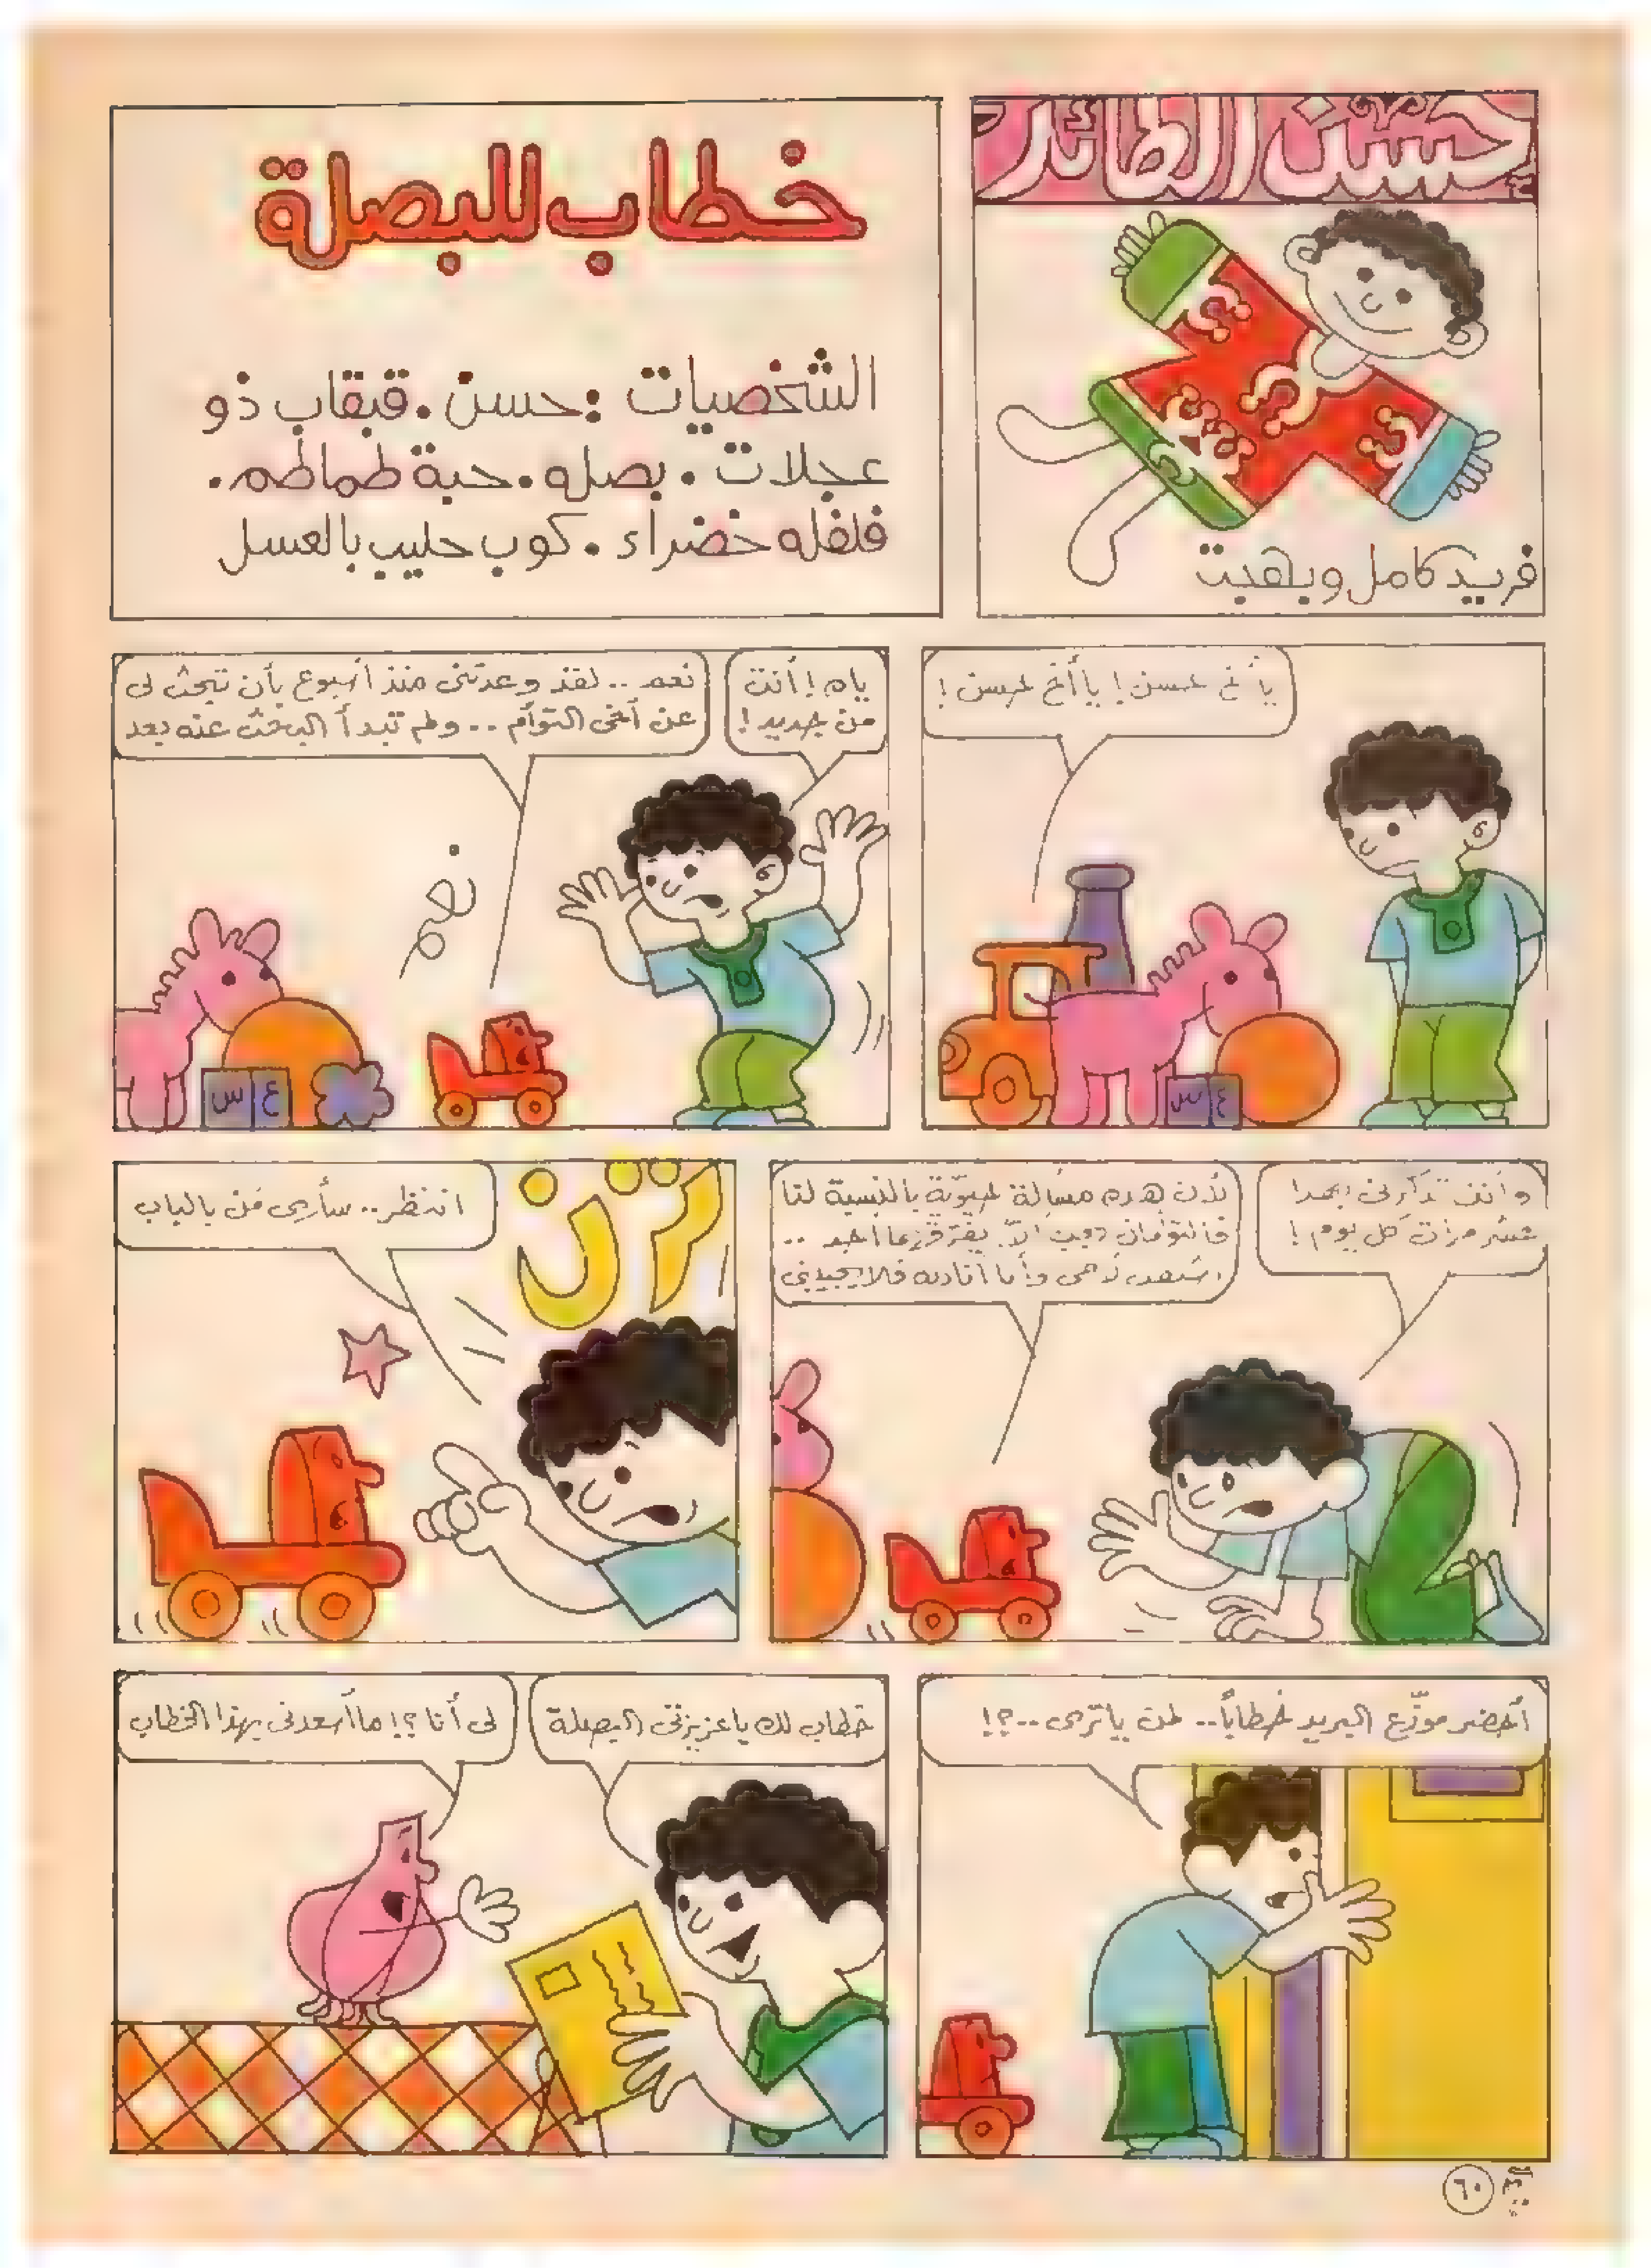 حسن الطائر
فريد كامل وبهجت
خطاب للبصلة
الشخصيات : حسن . قبقاب ذو
عجلات . بصله . حبة طماطم .
فلفله خضراء . كوب حليب بالعسل
يا أخ حسن ! يا أخ حسن !
ياه ! أنت
من جديد !
نعم .. لقد وعدتنى منذ أسبوع بأن تبحث لى
عن أخى التوأم .. ولم تبدأ البحث عنه بعد
نعم
س ع
س ع
وأنت تذكرنى بهذا
عشر مرات كل يوم !
لأن هذه مسألة حيوية بالنسبة لنا
فالتوأمان يجب ألا يفترقا أبدا ..
وأنا أناديه فلا يجيبنى
ترن
انتظر .. سأرى من بالباب
أحضر موزّع البريد خطاباً .. لمن يا ترى ..؟!
خطاب لك يا عزيزتى البصلة
لى أنا ؟! ما أسعدنى بهذا الخطاب
٦٠